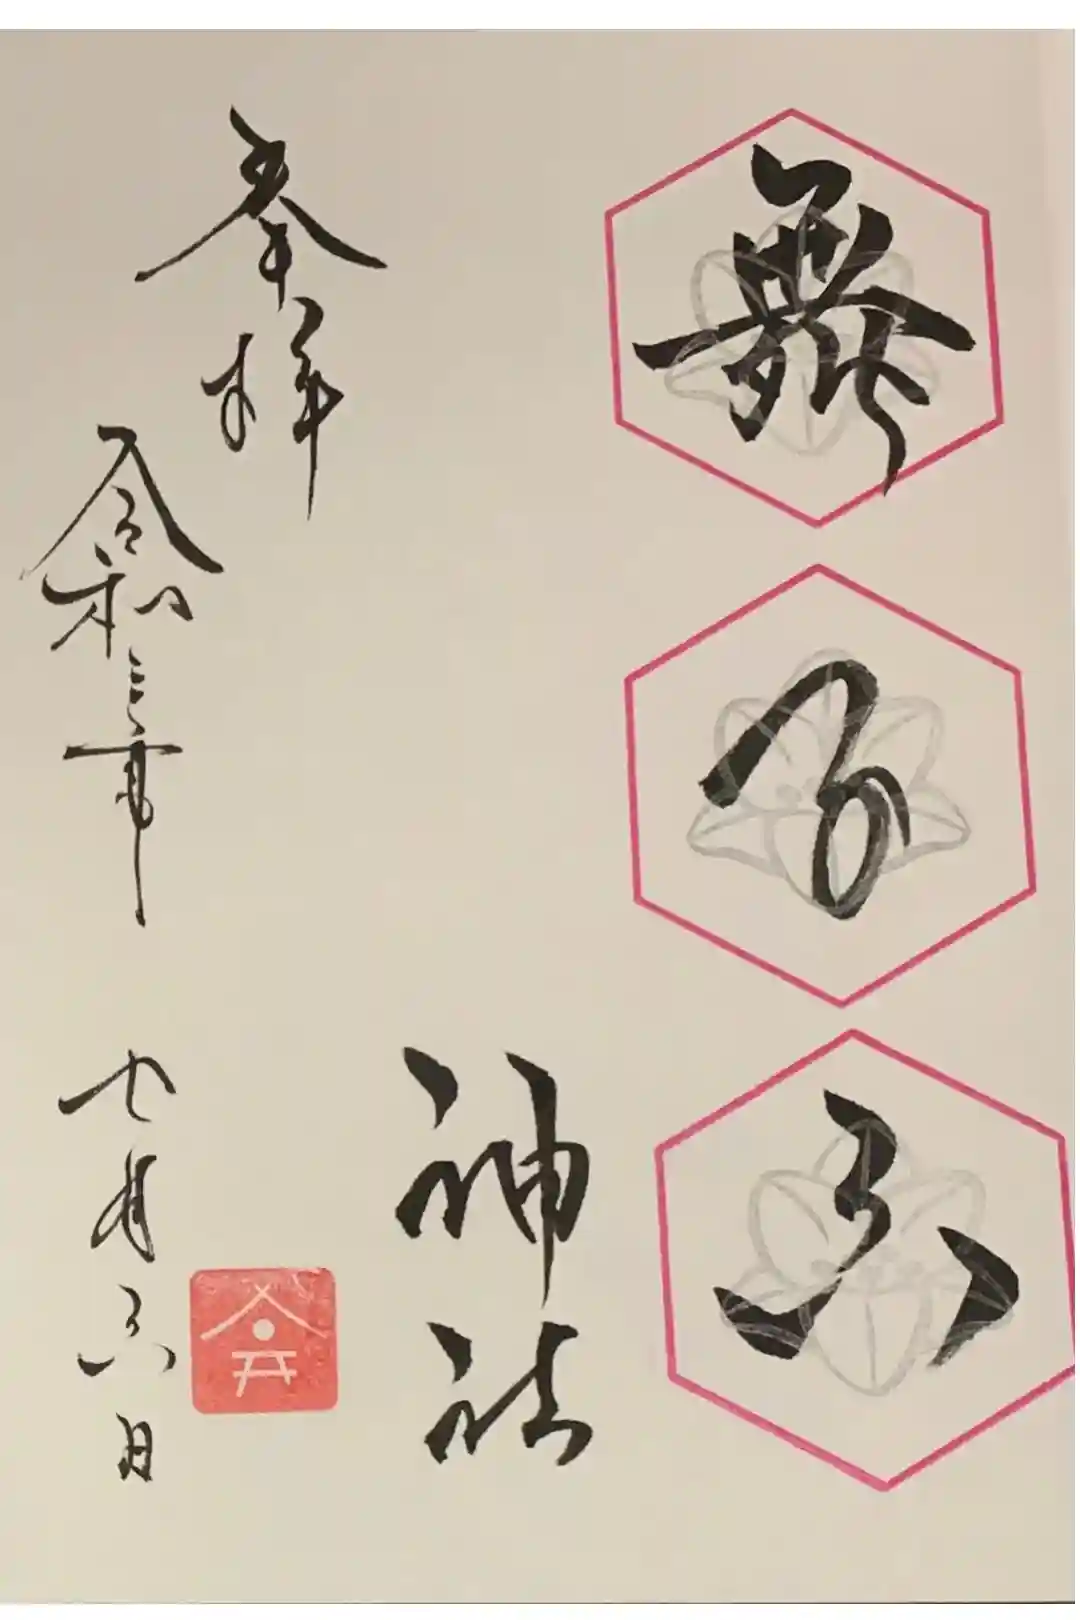 舞子六
神社
奉拝
令和三年 七月六日